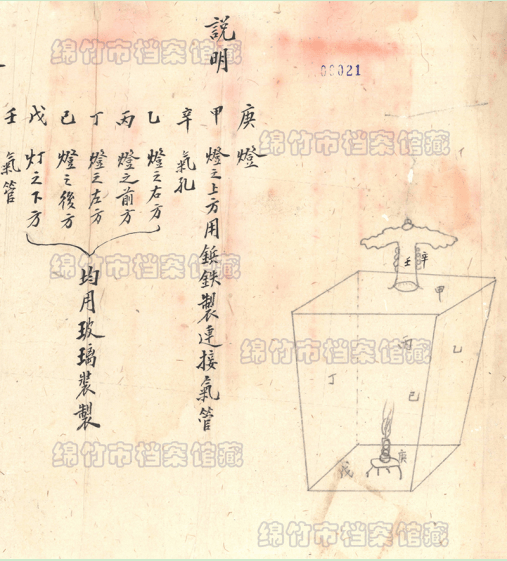 説明
庚 燈
甲 燈之上方用鋲鉄製連接氣管
辛 氣孔
乙 燈之右方
丙 燈之前方
丁 燈之左方
己 燈之後方
戊 灯之下方
均用玻璃裝製
壬 氣管
00021
辛
壬
甲
乙
丙
丁
己
庚
戊
绵竹市档案馆藏
绵竹市档案馆藏
绵竹市档案馆藏
绵竹市档案馆藏
绵竹市档案馆藏
绵竹市档案馆藏
绵竹市档案馆藏